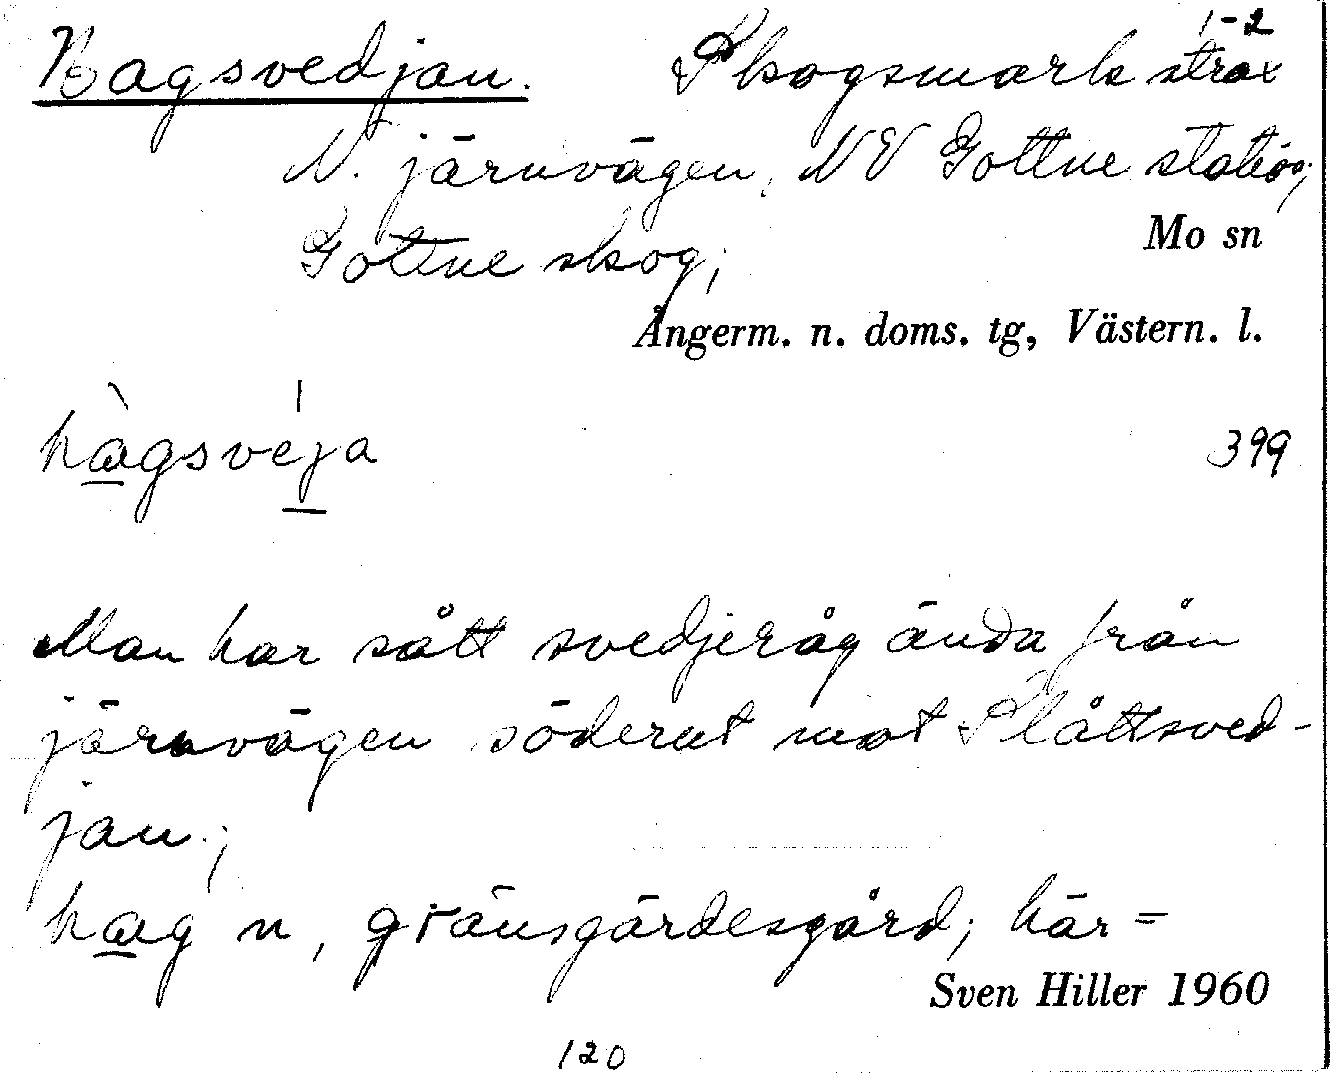 1-2
Hagsvedjan. Skogsmark strax
N. järnvägen, NV Gottne station;
Gottne skog;
Mo sn
Ångerm. n. doms. tg, Västern. l.
hàgsvéja
399
Man har sått svedjeråg ända från
järnvägen söderut mot Slåttsved-
jan.;
hag n, gränsgärdesgård; här=
Sven Hiller 1960
120